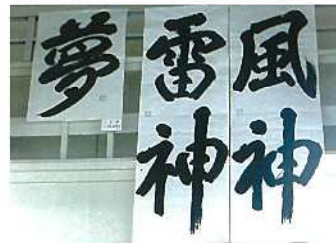 風神
雷神
夢